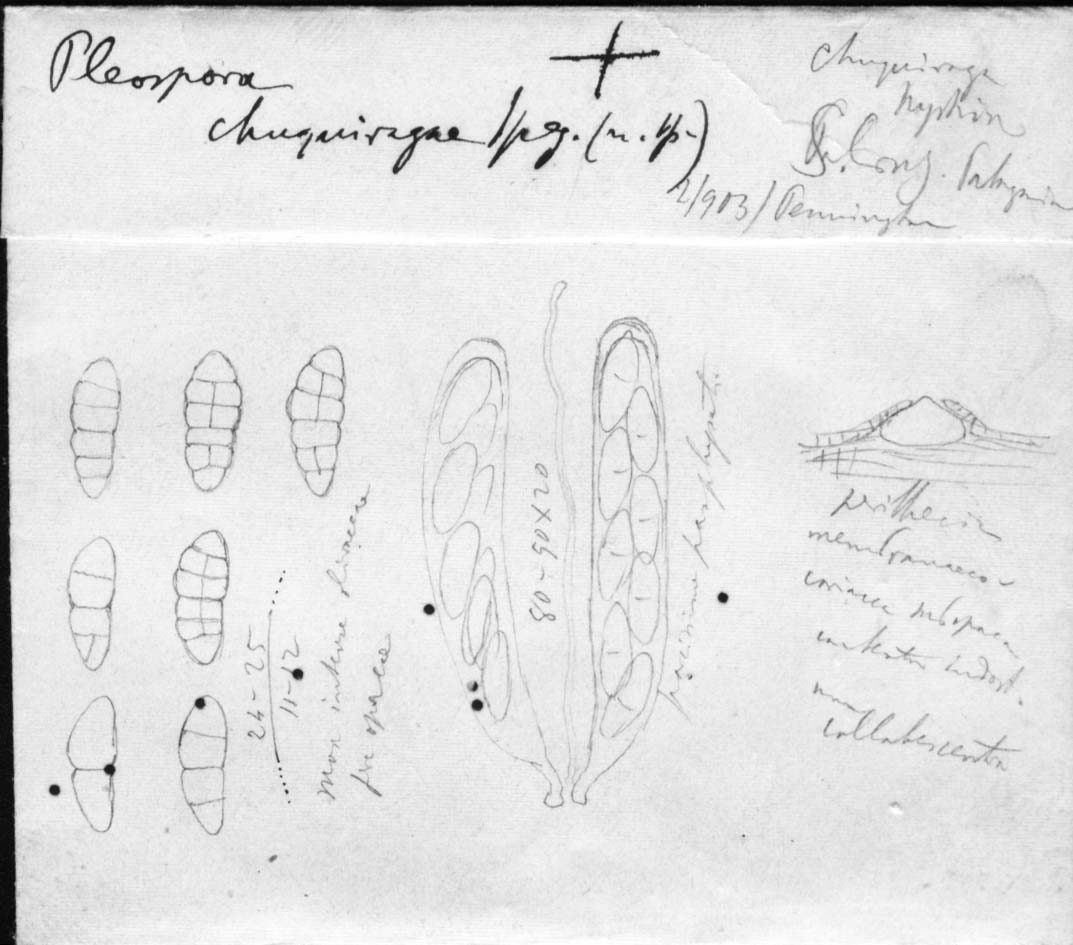 Pleospora
chuquiragae Speg. (n. sp.)
Chuquiraga
Hystrix
Patagonia
2/903/Pennington
24-25
11-12
mox intense olivaceae
opacae
80-90x20
paraphysatis
perithecia
membranaceo-
coriacea subopaca
contextu indist.
non
collabescentia